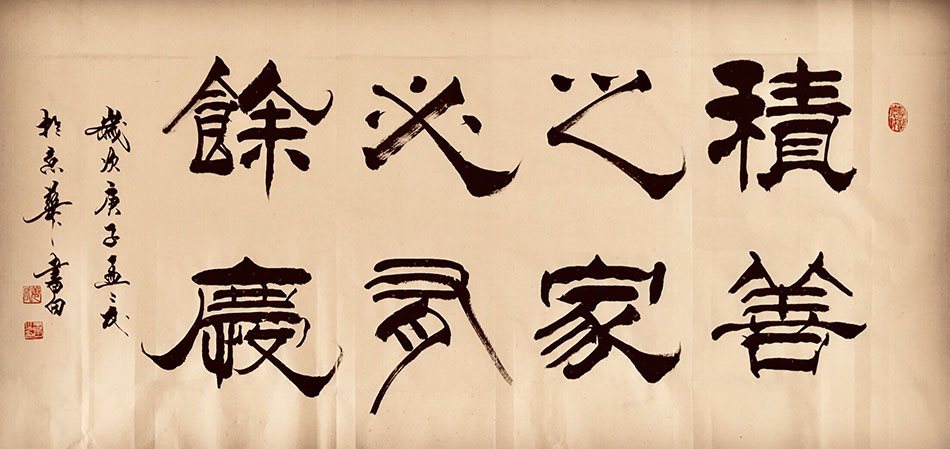 積善
之家
必有
餘慶
歲次庚子孟
於京華書